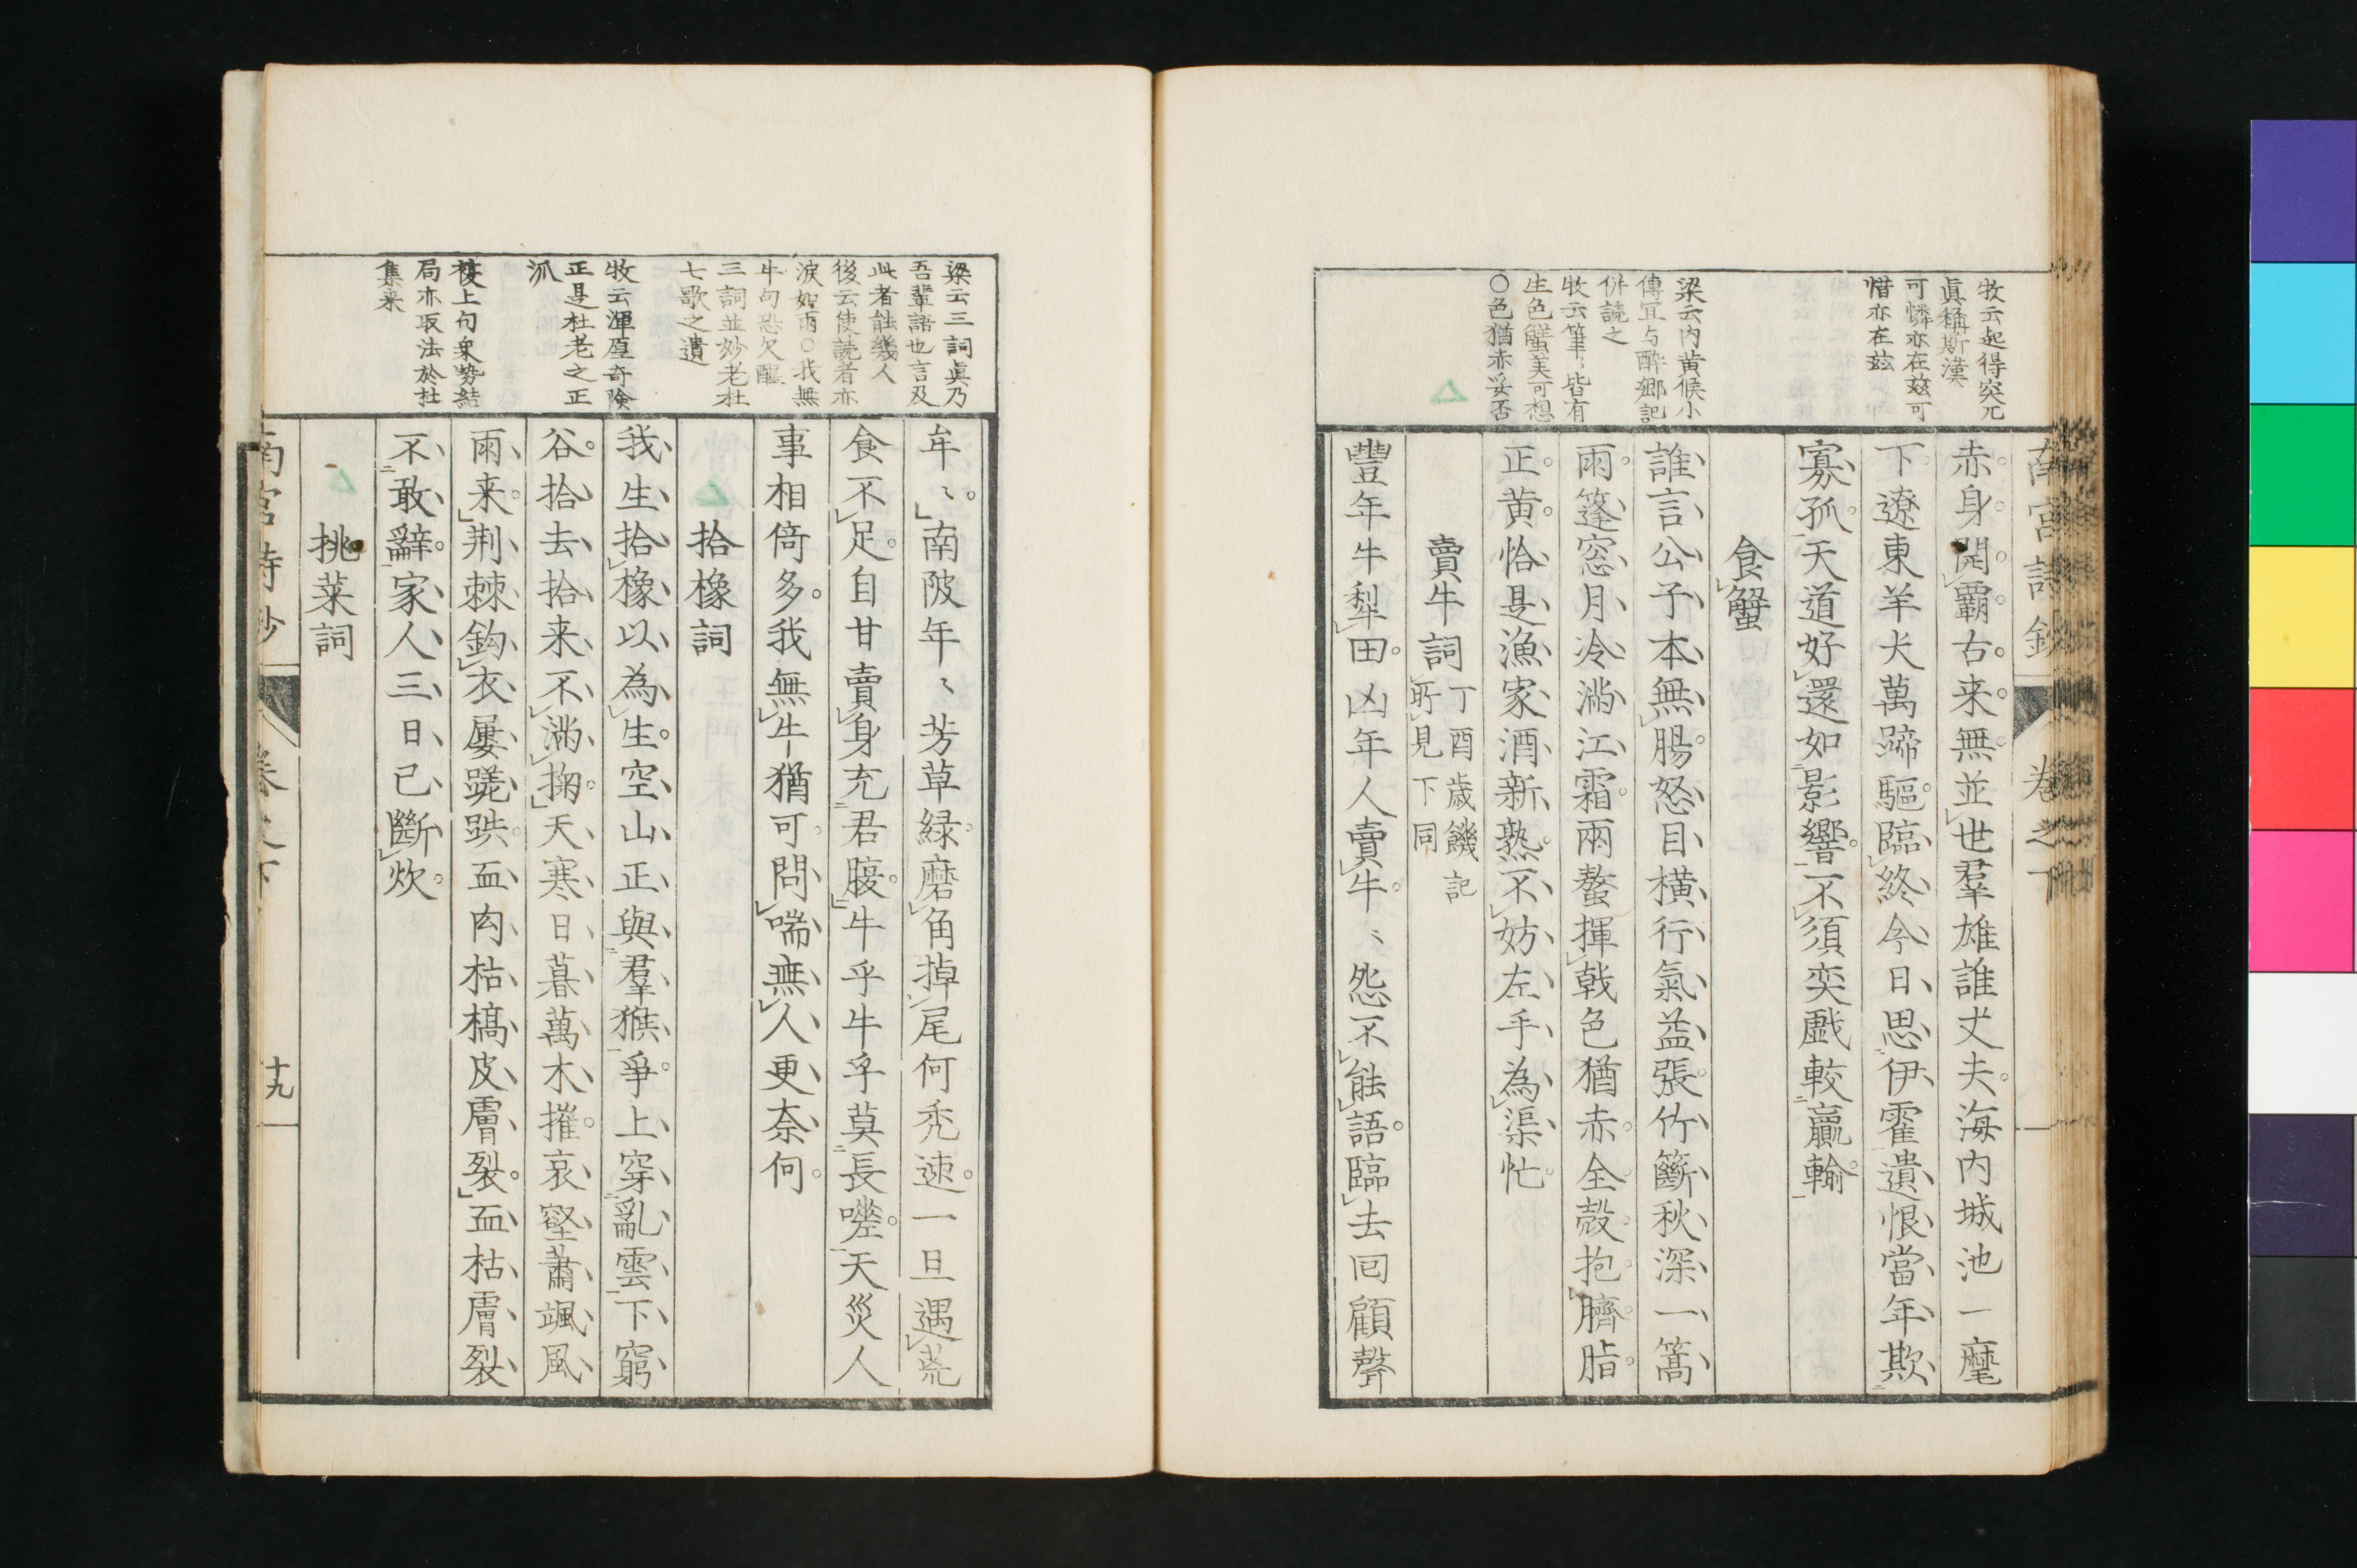 南宮詩鈔 卷之下
牧云起得突兀
眞稱斯漢
可憐亦在玆可
惜亦在玆
梁云内黄侯小
傳冝与酔郷記
併読之
牧云筆〻皆有
生色蟹美可想
○色猶赤妥否
赤身開霸古来無並世羣雄誰丈夫海内城池一麾
下遼東羊犬萬蹄驅臨終今日思伊霍遺恨當年欺
寡孤天道好還如影響不須奕戲較贏輸
食蟹
誰言公子本無腸怒目横行氣益張竹籪秋深一篙
雨篷窓月冷滿江霜兩螯揮戟色猶赤全殼抱臍脂
正黄恰是漁家酒新熟不妨左手為渠忙
賣牛詞 丁酉歳饑記
所見下同
豐年牛犁田凶年人賣牛〻怨不能語臨去回顧聲
梁云三詞眞乃
吾輩語也言及
此者能幾人
後云使読者亦
淚如雨○我無
牛句恐欠醞
三詞並妙老杜
七歌之遺
牧云渾厚奇險
正是杜老之正
派
後上句矣勢結
局亦取法於杜
集来
牟〻南陂年〻芳草緑磨角掉尾何禿速一旦遇荒
食不足自甘賣身充君腹牛乎牛乎莫長嗟天災人
事相倚多我無牛猶可問喘無人更奈何
拾橡詞
我生拾橡以為生空山正與羣猴爭上穿亂雲下窮
谷拾去拾来不滿掬天寒日暮萬木摧哀壑蕭颯風
雨来荆棘鈎衣屨蹉跌血肉枯槁皮膚裂血枯膚裂
不敢辭家人三日已斷炊
挑菜詞
南宮詩鈔 卷之下 十九